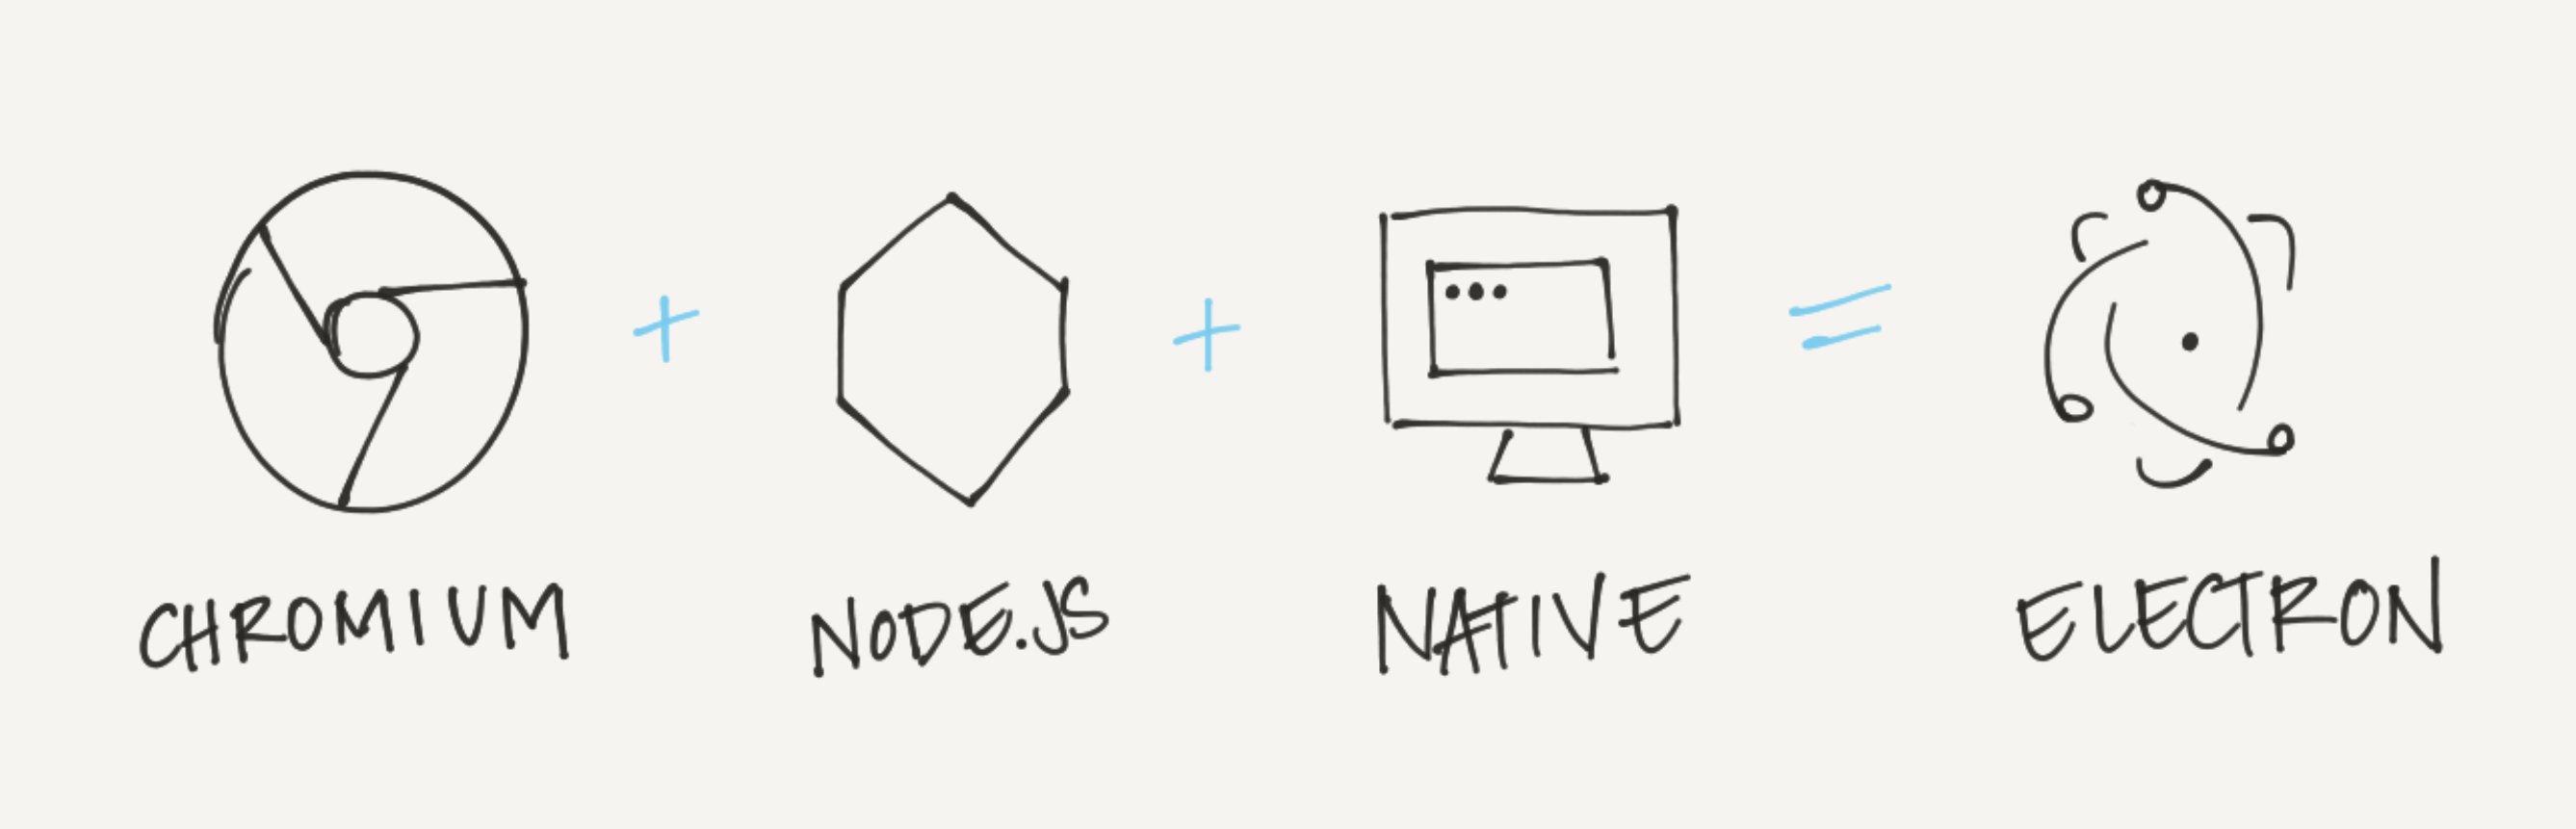 CHROMIUM + NODE.JS + NATIVE = ELECTRON